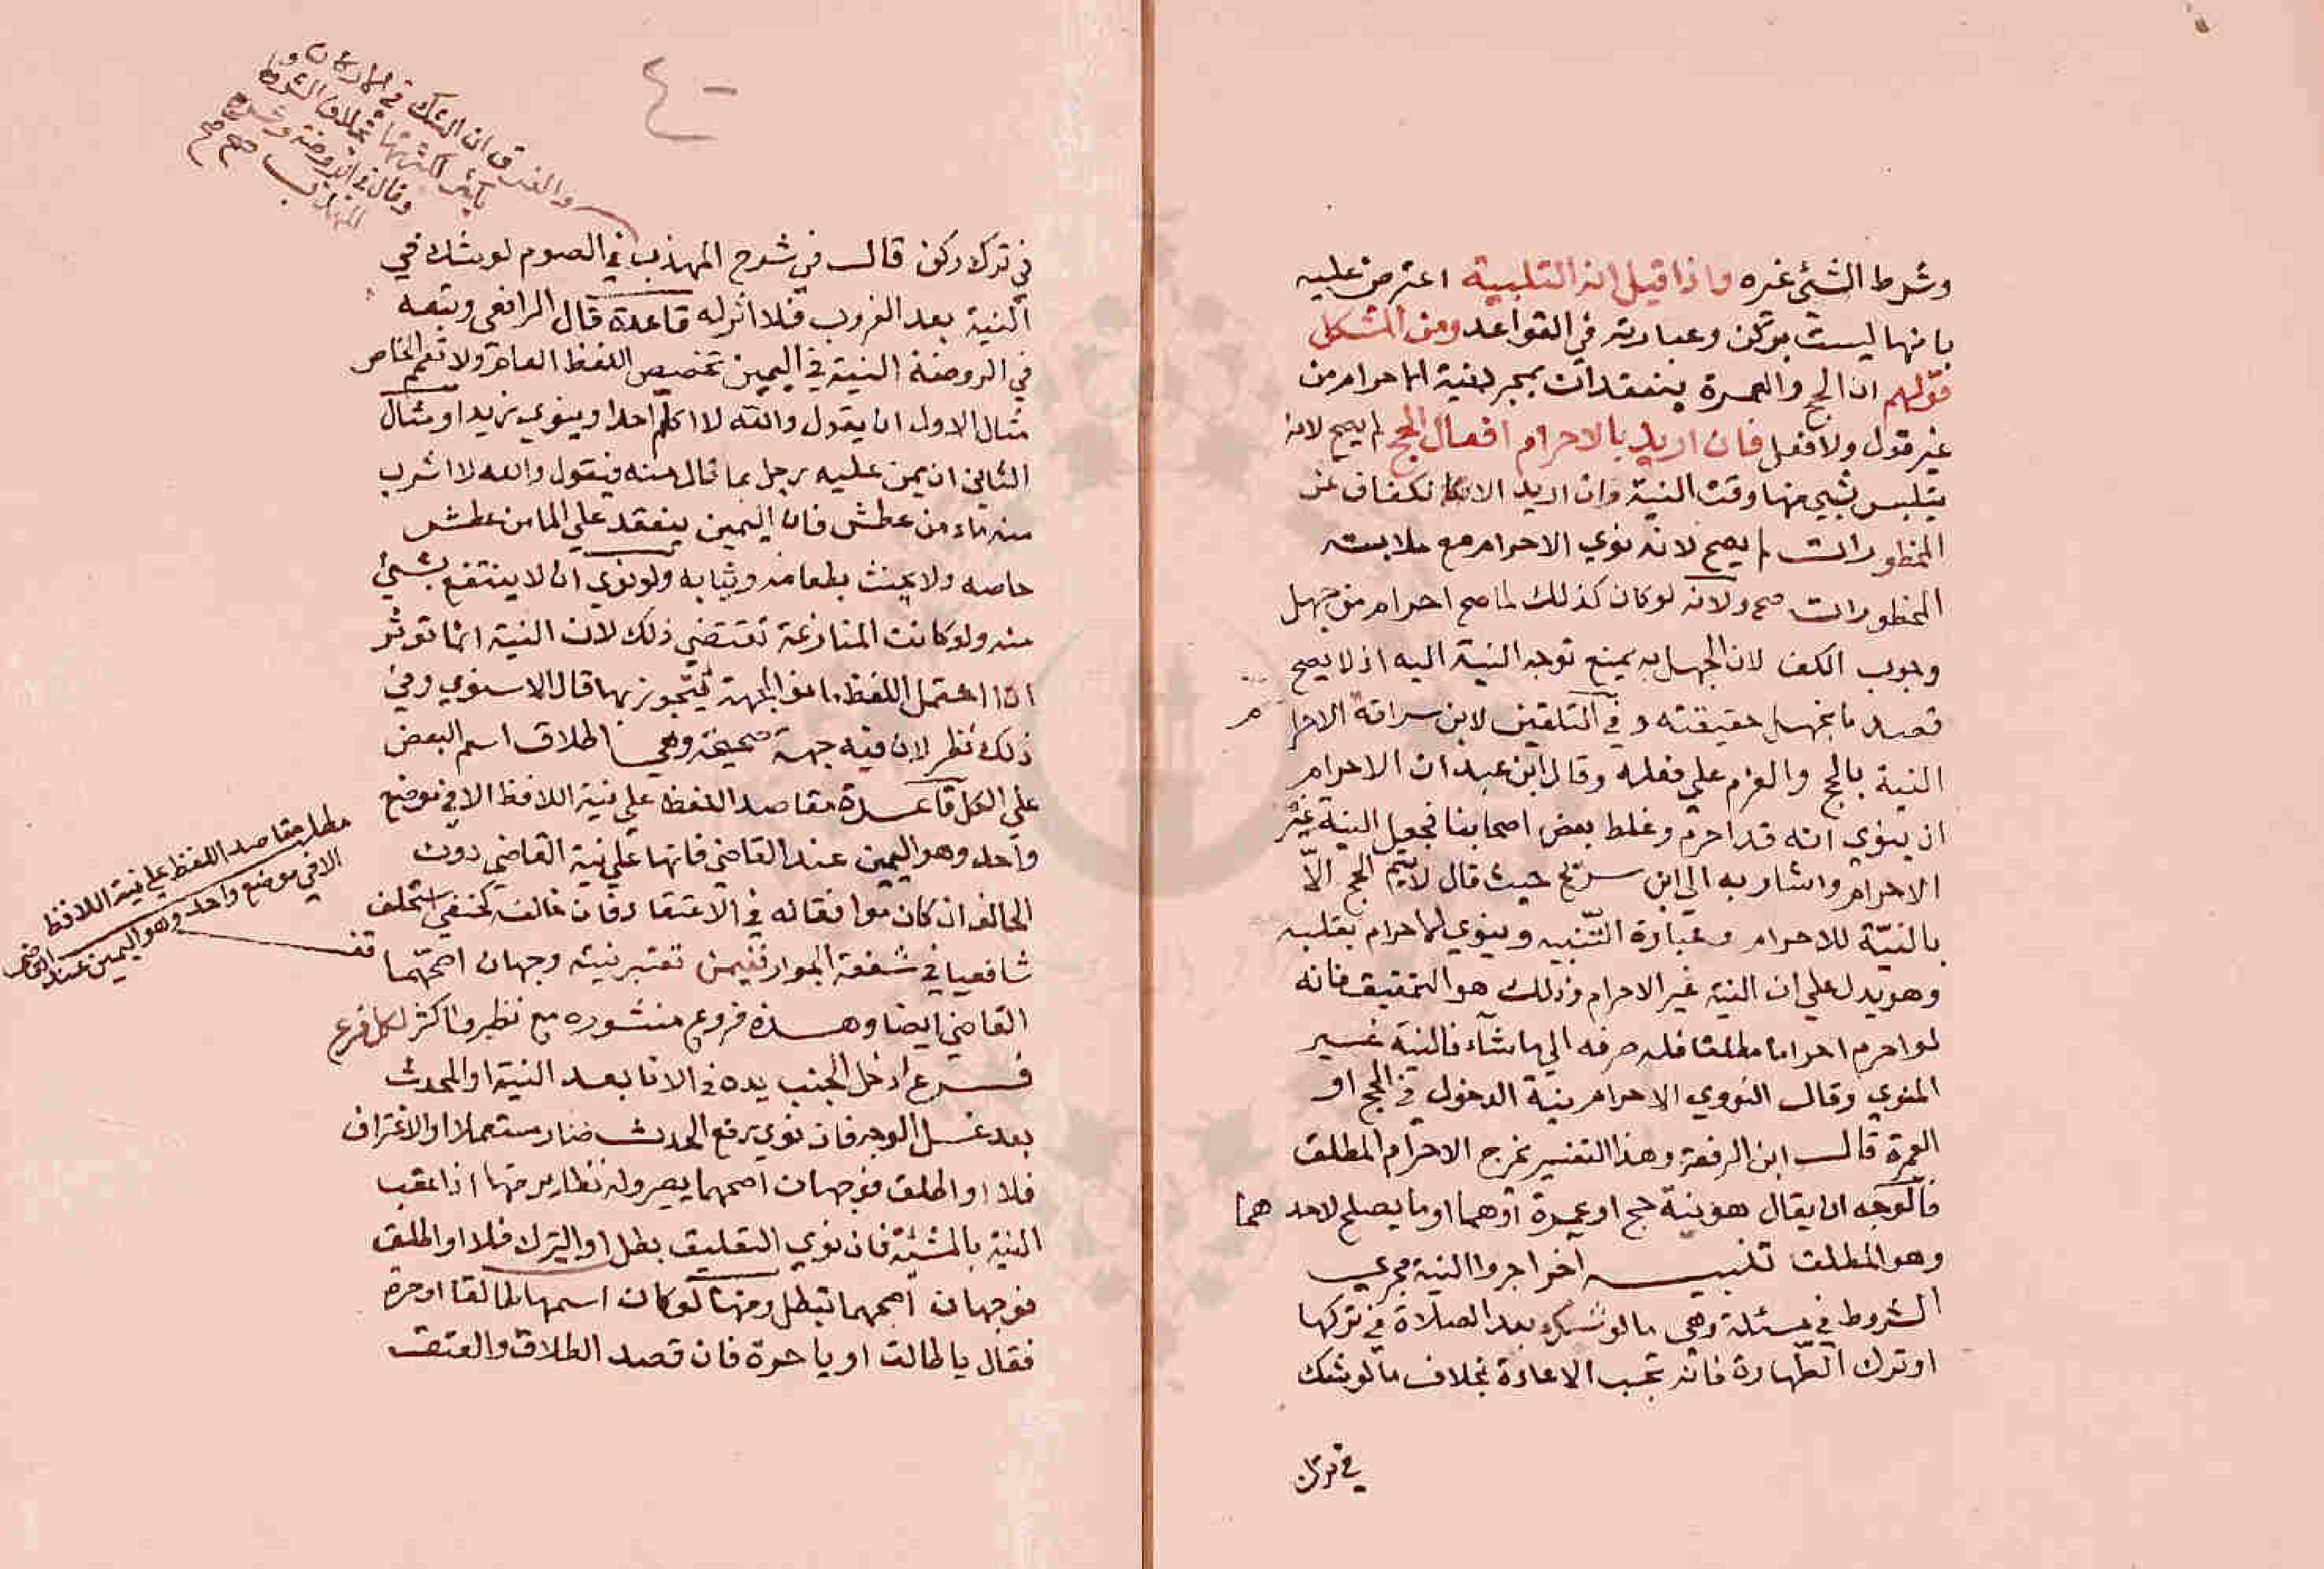 وشرط الشئ غيره واذا قيل انه التلبية اعترض عليه
بانها ليست بركن وعبارته في القواعد ومن المشكل
قولهم ان الحج والعمرة ينعقدان بمجرد نية الاحرام من
غير قول ولا فعل فان اريد بالاحرام افعال الحج لم يصح لانه
يتلبس بشيء منها وقت النية وان اريد الانكفاف عن
المحظورات لم يصح لانه لو نوي الاحرام مع ملابسته
المحظورات صح ولانه لو كان كذلك لما صح احرام من جهل
وجوب الكف لان الجهل به يمنع توجه النية اليه اذ لا يصح
قصد ما يجهل حقيقته و في التلقين لابن سراقة الاحرام
النية بالحج والعزم علي فعله وقال ابن عبدان الاحرام
ان ينوي انه قد احرم وغلط بعض اصحابنا فجعل النية غير
الاحرام واشار به الي ابن سريج حيث قال لا يتم الحج الا
بالنية للاحرام وعبارة التنبيه وينوي الاحرام بقلبه
وهو يدل علي ان النية غير الاحرام وذلك هو التحقيق فانه
لو احرم احراما مطلقا فله صرفه الي ما شاء فالنية غير
المنوي وقال النووي الاحرام نية الدخول في الحج او
العمرة قال ابن الرفعة وهذا التفسير يخرج الاحرام المطلق
فالوجه ان يقال هو نية حج او عمرة او هما او ما يصلح لاحدهما
وهو المطلق تنبيه آخر اجروا النية مجري
الشروط في مسئلة وهي ما لو شك بعد الصلاة في تركها
او ترك الطهارة فانه تجب الاعادة بخلاف ما لو شك
في ترك
٤٠
والفرق ان الشك في الاركان
يكثر لكثرتها بخلاف الشروط
وقال في الروضة وشرح
المهذب صح صح
في ترك ركن قال في شرح المهذب في الصوم لو شك في
النية بعد الغروب فلا اثر له قاعدة قال الرافعي وتبعه
في الروضة النية في اليمين تخصيص اللفظ العام ولا تعم الخاص
مثال الاول ان يقول والله لا اكلم احدا وينوي زيدا ومثال
الثاني ان يمن عليه رجل بما نال منه فيقول والله لا اشرب
منه ماء من عطش فان اليمين ينعقد علي الما من عطش
خاصه ولا يحنث بطعامه وثيابه ولو نوي ان لا ينتفع بشئ
منه ولو كانت المنازعة تقتضي ذلك لان النية انما توثر
اذا احتمل اللفظ ما نوي لجهة يتجوز بها قال الاسنوي وفي
ذلك نظر لان فيه جهة صحيحة وهي اطلاق اسم البعض
علي الكل قاعدة مقاصد اللفظ علي نية اللافظ الا في موضع
واحد وهو اليمين عند القاضي فانها علي نية القاضي دون
الحالف ان كان موافقا له في الاعتقاد فان خالفه كحنفي استحلف
شافعيا في شفعة الجوار ففيمن تعتبر نيته وجهان اصحهما
القاضي ايضا وهذه فروع منثوره مع نظير واكثر لكل فرع
فرع ادخل الجنب يده في الانا بعد النية او المحدث
بعد غسل الوجه فان نوي رفع الحدث صار مستعملا او الاغتراف
فلا او اطلق فوجهان اصحهما يصير وله نظاير منها اذا عقب
النية بالمشئة فان نوي التعليق بطل او التبرك فلا او اطلق
فوجهان اصحهما تبطل ومنها لو كان اسمها طالقا او حرة
فقال يا طالق او يا حرة فان قصد الطلاق والعتق
مطلب مقاصد اللفظ علي نية اللافظ
الا في موضع واحد وهو اليمين عند القاضي
قف